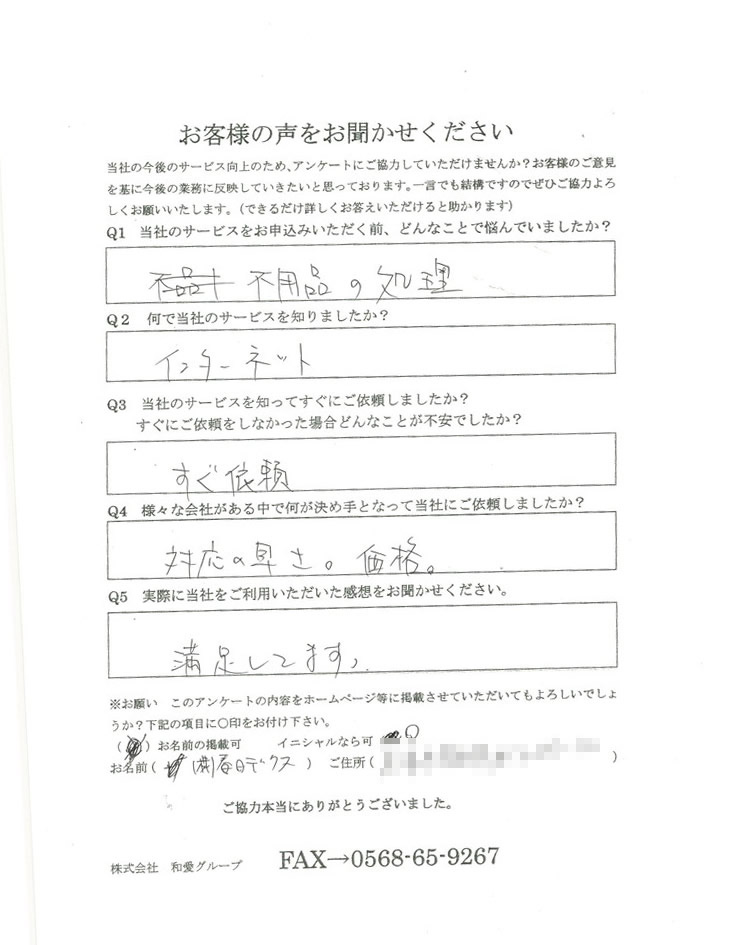 お客様の声をお聞かせください
当社の今後のサービス向上のため、アンケートにご協力していただけませんか？お客様のご意見
を基に今後の業務に反映していきたいと思っております。一言でも結構ですのでぜひご協力よろ
しくお願いいたします。（できるだけ詳しくお答えいただけると助かります）
Q1　当社のサービスをお申込みいただく前、どんなことで悩んでいましたか？
不用品の処理
Q2　何で当社のサービスを知りましたか？
インターネット
Q3　当社のサービスを知ってすぐにご依頼しましたか？
すぐにご依頼をしなかった場合どんなことが不安でしたか？
すぐ依頼
Q4　様々な会社がある中で何が決め手となって当社にご依頼しましたか？
対応の早さ。価格。
Q5　実際に当社をご利用いただいた感想をお聞かせください。
満足してます。
※お願い　このアンケートの内容をホームページ等に掲載させていただいてもよろしいでしょ
うか？下記の項目に○印をお付け下さい。
（　）お名前の掲載可　イニシャルなら可　○
お名前（　㈱春日デクス　）　ご住所（　）
ご協力本当にありがとうございました。
株式会社　和愛グループ　FAX→0568-65-9267